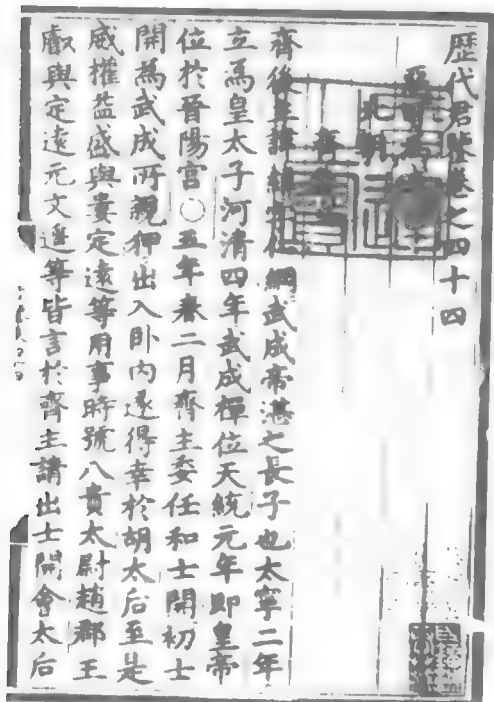 歷代君鑒卷之四十四
惡
北朝
齊後主諱緯字仁綱武成帝湛之長子也太寧二年
立為皇太子河清四年武成禪位天統元年即皇帝
位於晉陽宮○五年春二月齊主委任和士開初士
開為武成所親狎出入卧內遂得幸於胡太后至是
威權益盛與婁定遠等用事時號八貴太尉趙郡王
叡與定遠元文遙等皆言於齊主請出士開會太后